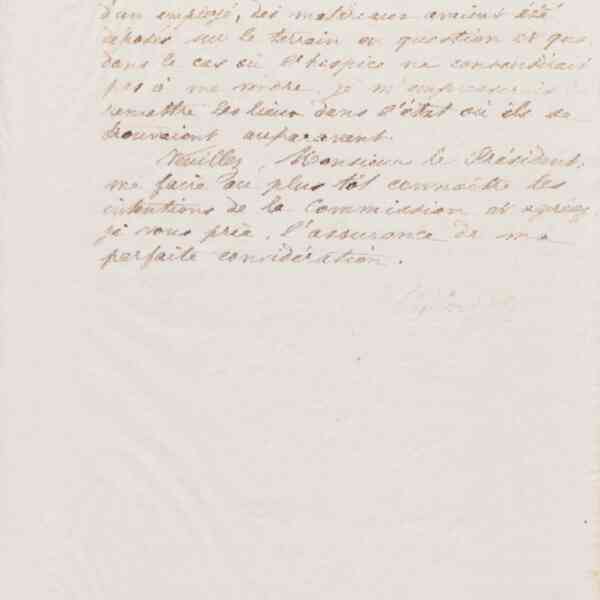 d'un employé, des matériaux avaient été
déposés sur le terrain en question et que
dans le cas où l'hospice ne consentirait
pas à me vendre, je m'empresserais de
remettre les lieux dans l'état où ils se
trouvaient auparavant.
Veuillez, Monsieur le Président,
me faire au plus tôt connaître les
intentions de la Commission et agréez,
je vous prie, l'assurance de ma
parfaite considération.